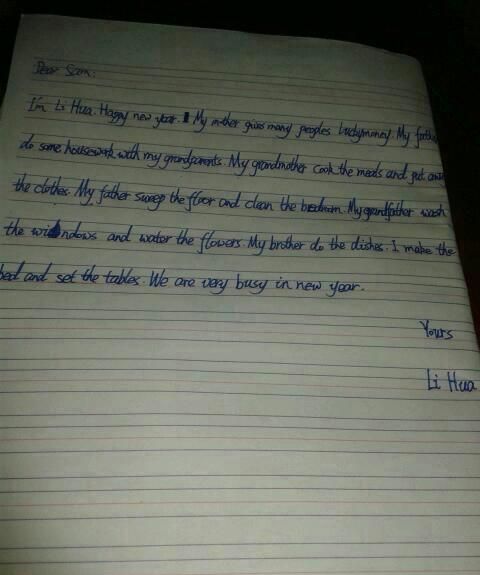 Dear Sam:
I'm Li Hua. Happy new year. My mother gives many peoples luckymoney. My father
do some housework with my grandparents. My grandmother cook the meals and put away
the clothes. My father sweep the floor and clean the bedroom. My grandfather wash
the windows and water the flowers. My brother do the dishes. I make the
bed and set the tables. We are very busy in new year.
Yours
Li Hua